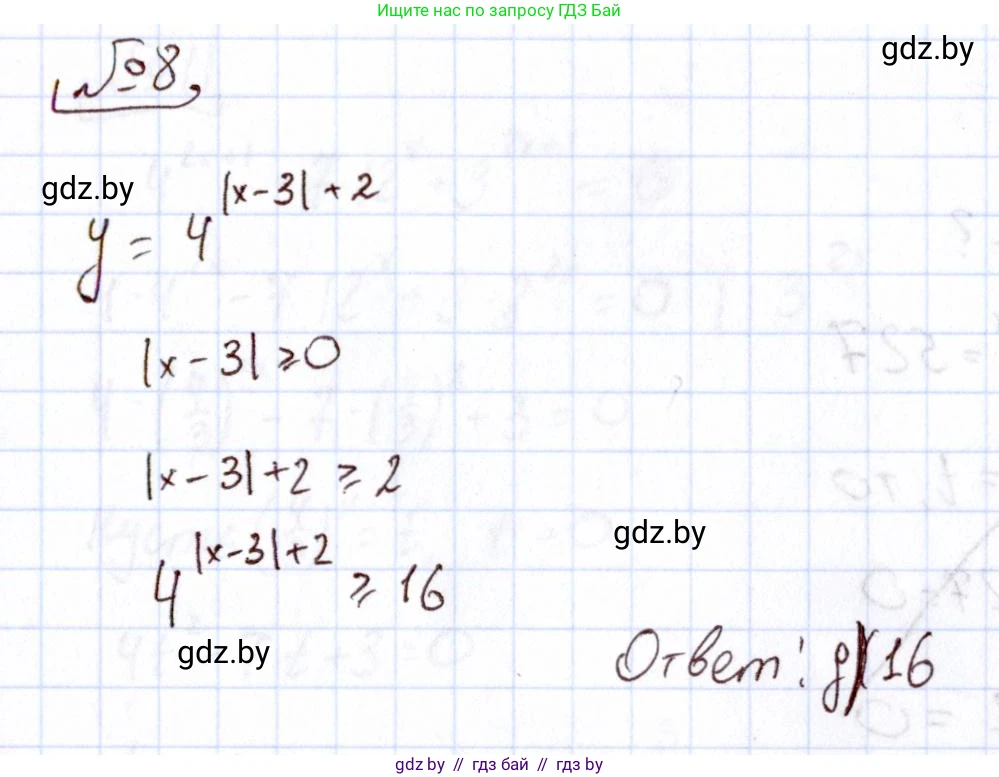 Ищите нас по запросу ГДЗ Бай
gdz.by
№8
gdz.by
y = 4^{|x-3|+2}
|x-3| ⩾ 0
|x-3|+2 ⩾ 2
gdz.by
4^{|x-3|+2} ⩾ 16
gdz.by
Ответ: g) 16
gdz.by // гдз бай // гдз by